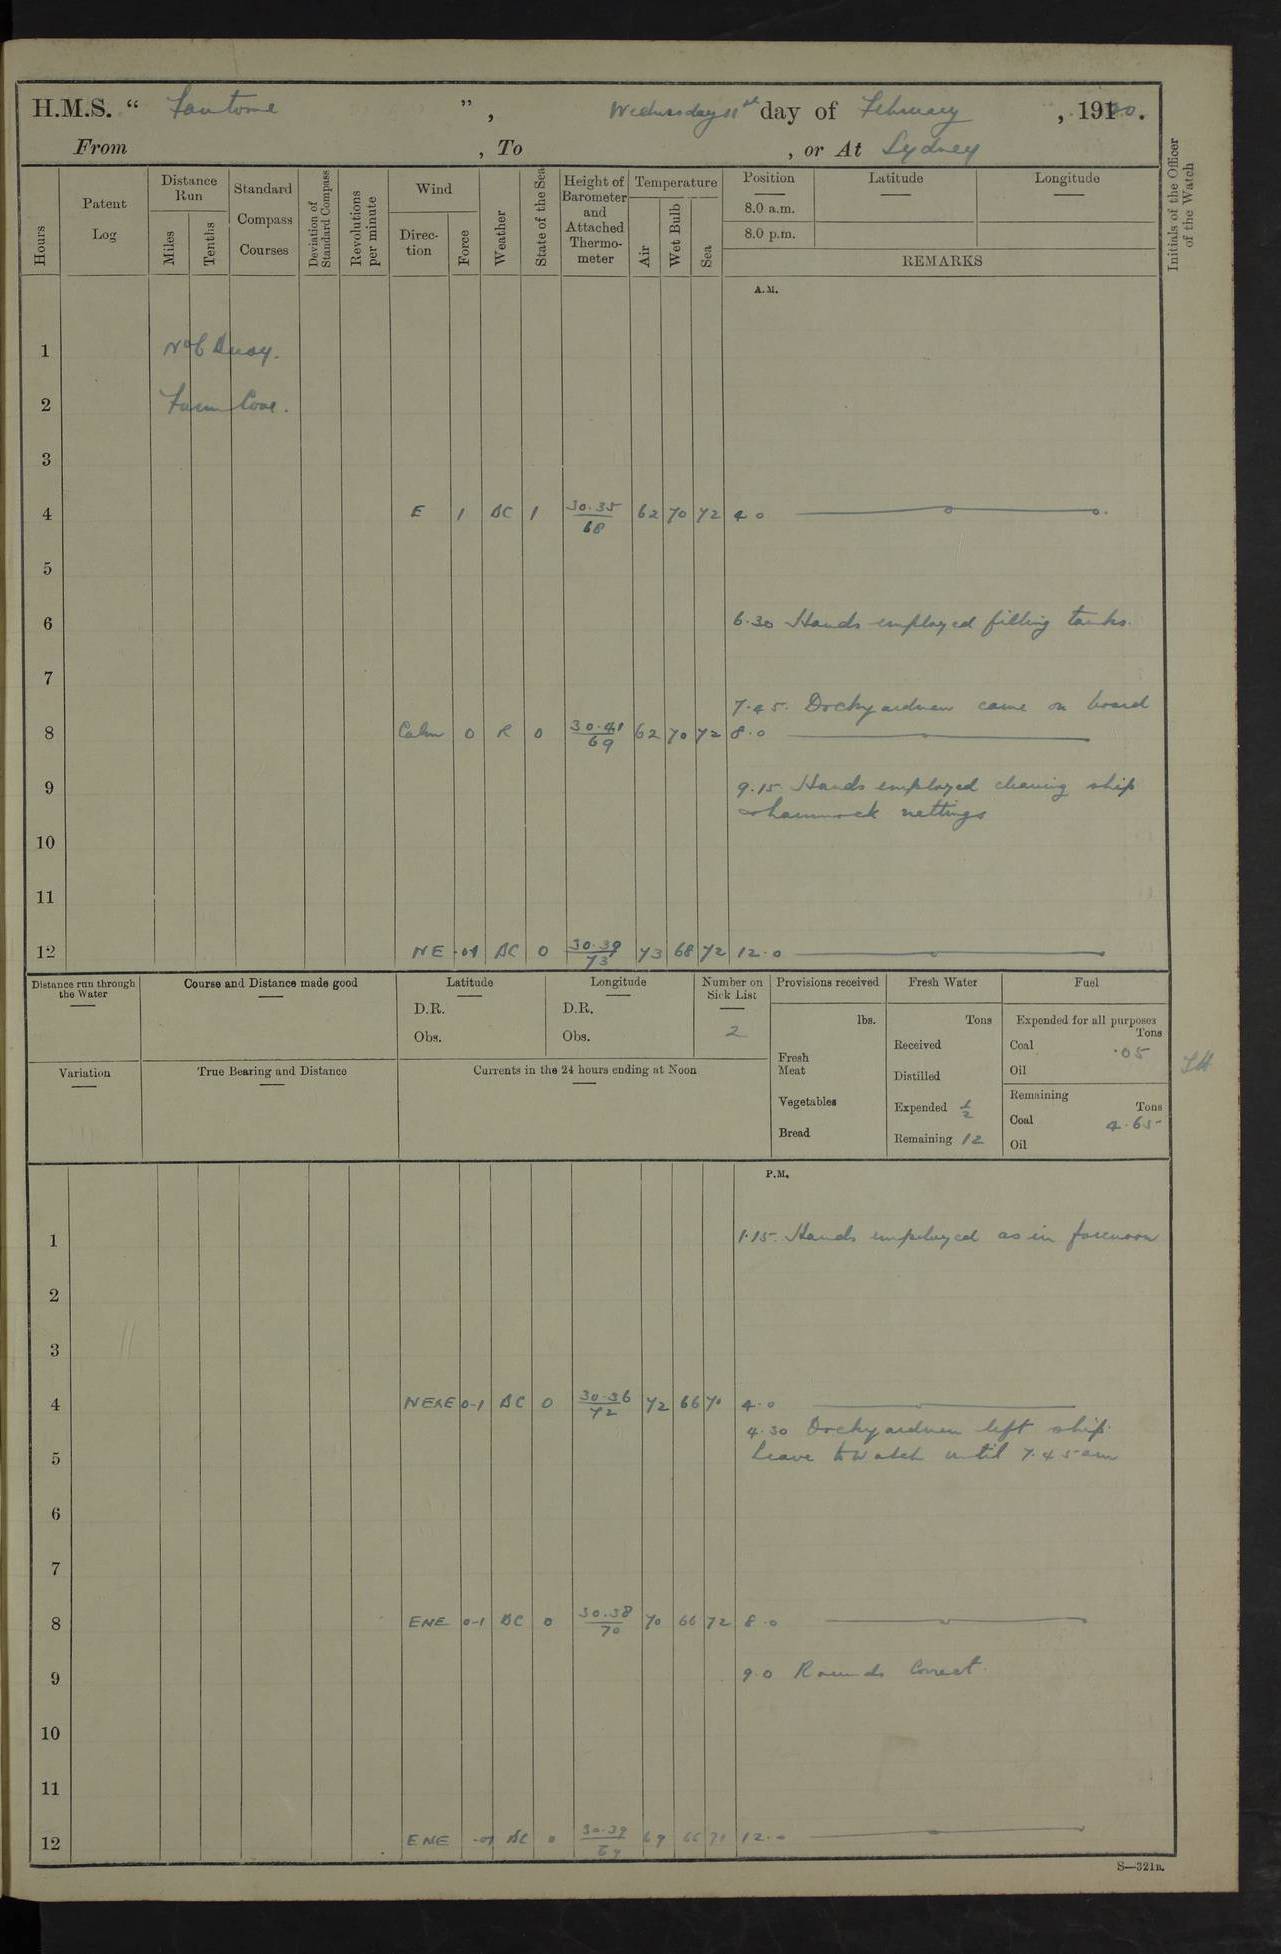 H.M.S. " Fantome ", Wednesday 11th day of February, 19120.
From , To , or At Sydney
Hours
Patent Log
Distance Run
Miles
Tenths
Standard Compass Courses
Deviation of Standard Compass
Revolutions per minute
Wind
Direction
Force
Weather
State of the Sea
Height of Barometer and Attached Thermometer
Temperature
Air
Wet Bulb
Sea
Position
8.0 a.m.
8.0 p.m.
Latitude
Longitude
REMARKS
Initials of the Officer of the Watch
A.M.
1 No 6 Buoy.
2 Farm Cove.
3
4 E 1 BC 1 30.35/68 62 70 72 4.0
5
6 6.30 Hands employed filling tanks.
7
7.45. Dockyardmen came on board
8 Calm 0 R 0 30.41/69 62 70 72 8.0
9 9.15. Hands employed cleaning ship
& hammock nettings
10
11
12 NE 0-1 BC 0 30.39/73 73 68 72 12.0
Distance run through the Water
Course and Distance made good
Latitude
D.R.
Obs.
Longitude
D.R.
Obs.
Number on Sick List
2
Provisions received
lbs.
Fresh Meat
Vegetables
Bread
Fresh Water
Tons
Received
Distilled
Expended 1/2
Remaining 12
Fuel
Expended for all purposes
Tons
Coal .05
Oil
Remaining
Tons
Coal 4.65
Oil
Variation
True Bearing and Distance
Currents in the 24 hours ending at Noon
P.M.
1 1.15. Hands employed as in forenoon
2
3
4 0-1 BC 0 30.36/72 72 66 70 4.0
4.30 Dockyardmen left ship.
5 Leave to watch until 7.45 am
6
7
8 ENE 0-1 BC 0 30.38/70 70 66 72 8.0
9 9.0 Rounds Correct.
10
11
12 ENE 0-1 BC 0 30.39/69 69 66 71 12.0
S—321B.